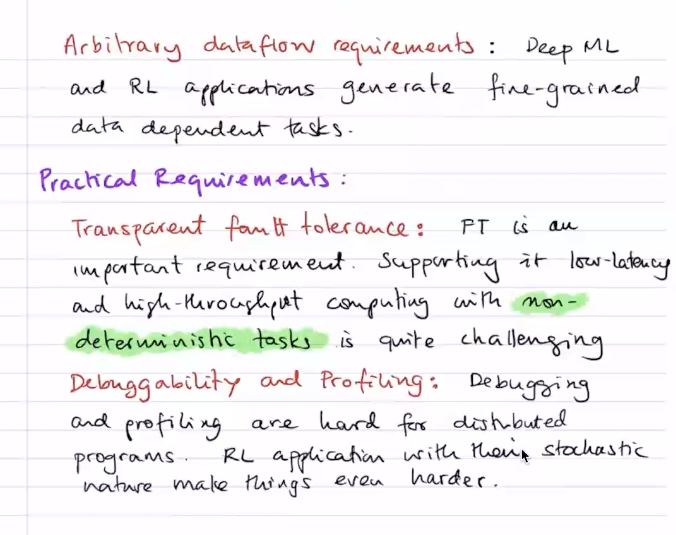 Arbitrary dataflow requirements : Deep ML
and RL applications generate fine-grained
data dependent tasks.
Practical Requirements :
Transparent fault tolerance : FT is an
important requirement. Supporting it low-latency
and high-throughput computing with non-
deterministic tasks is quite challenging
Debuggability and Profiling : Debugging
and profiling are hard for distributed
programs. RL application with their stochastic
nature make things even harder.